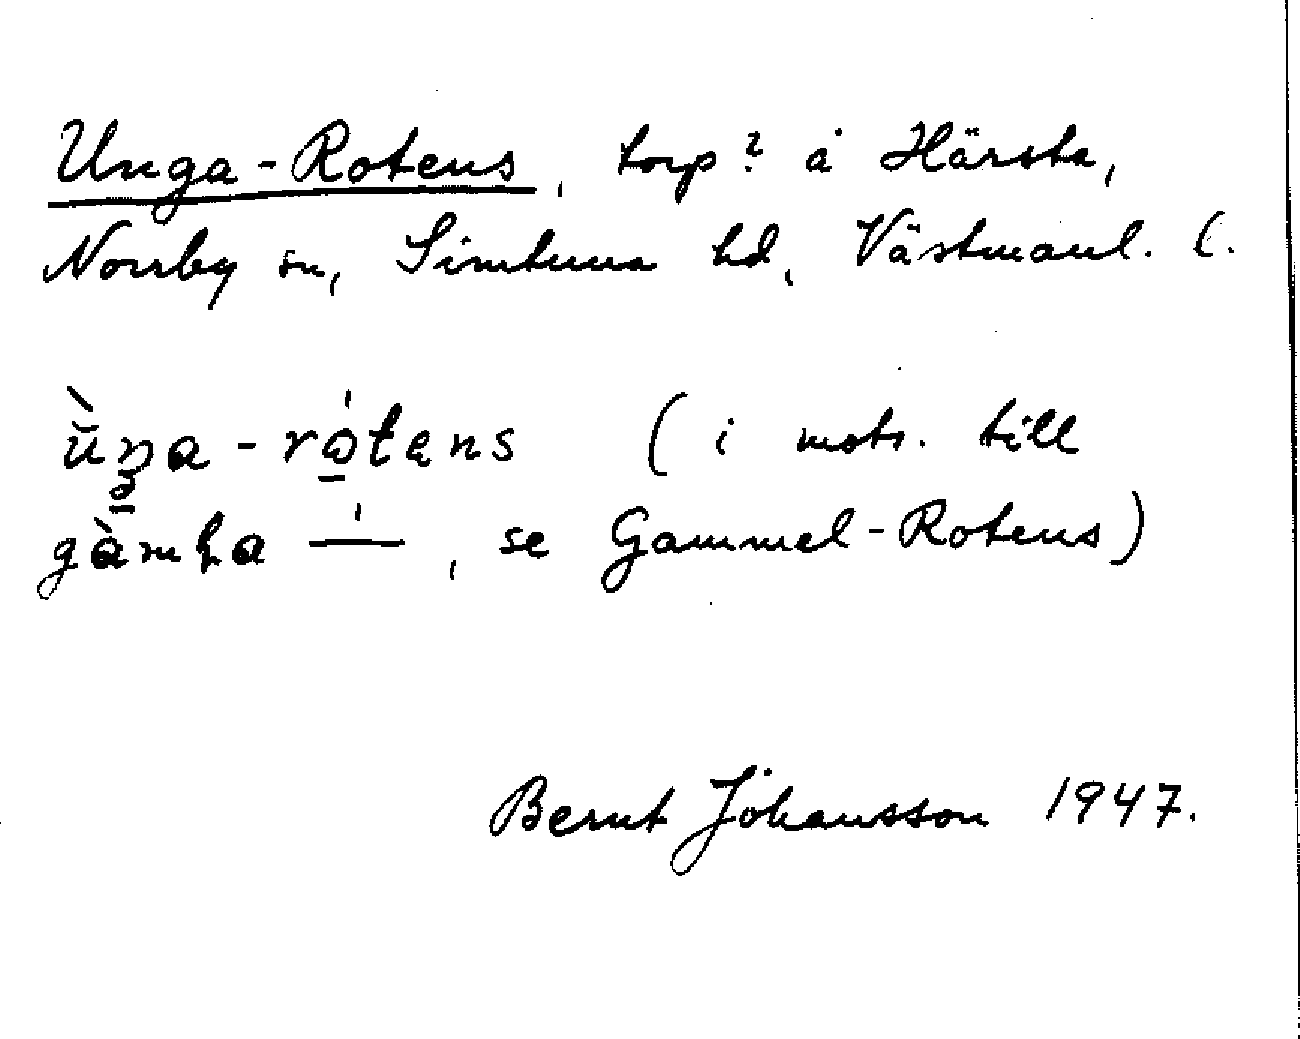 Unga-Rotens, torp? å Härsta,
Norrby sn, Simtuna hd, Västmanl. l.
(i mots. till
—, se Gammel-Rotens)
Bernt Johansson 1947.